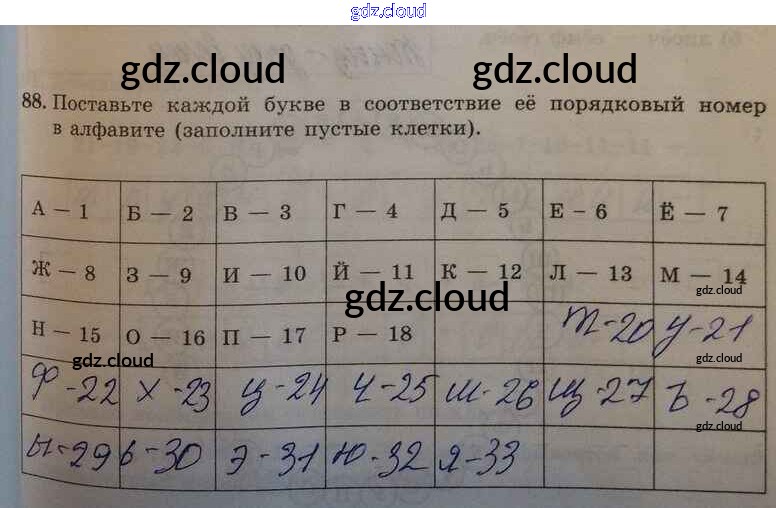 gdz.cloud
gdz.cloud gdz.cloud
88. Поставьте каждой букве в соответствие её порядковый номер
в алфавите (заполните пустые клетки).
А — 1 Б — 2 В — 3 Г — 4 Д — 5 Е – 6 Ё — 7
Ж — 8 З — 9 И — 10 Й — 11 К — 12 Л — 13 М — 14
gdz.cloud gdz.cloud
Н — 15 О — 16 П — 17 Р — 18 Т-20 У-21
gdz.cloud gdz.cloud
Ф-22 Х-23 Ц-24 Ч-25 Ш-26 Щ-27 Ъ-28
gdz.cloud
Ы-29 Ь-30 Э-31 Ю-32 Я-33